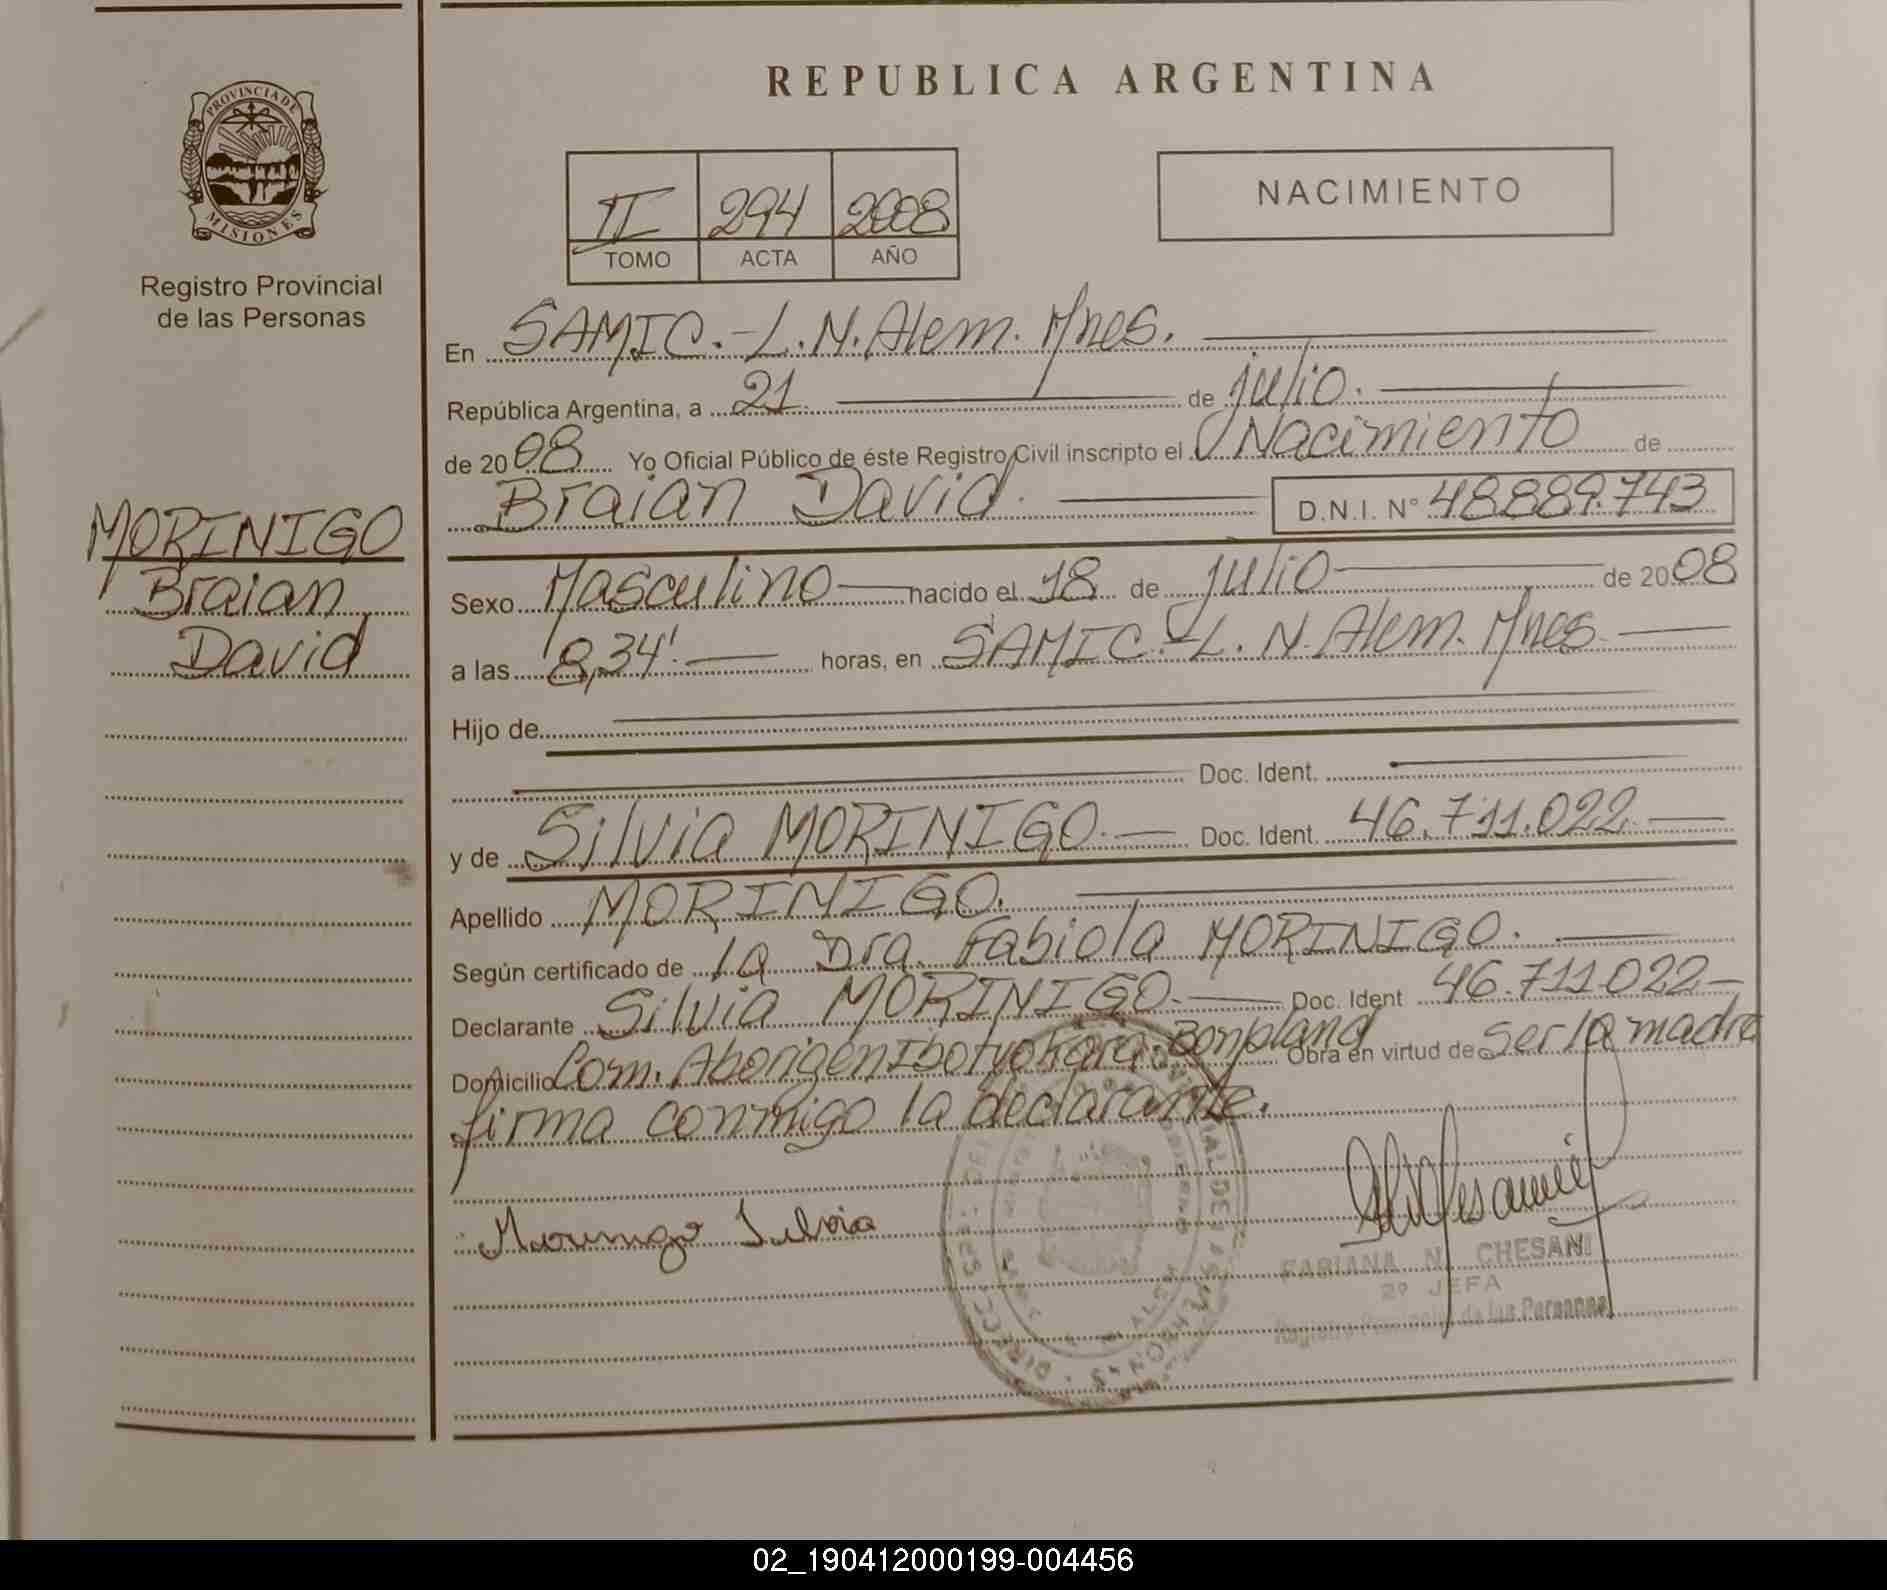 PROVINCIA DE
MISIONES
Registro Provincial
de las Personas
MORINIGO
Braian
David
REPUBLICA ARGENTINA
II 294 2008
TOMO ACTA AÑO
NACIMIENTO
En SAMIC.-L.N.Alem. Mnes.
República Argentina, a 21 de julio.
de 2008 Yo Oficial Público de éste Registro Civil inscripto el Nacimiento de
Braian David. D.N.I. N° 48.889.743
Sexo Masculino nacido el 18 de julio de 2008
a las 8,34'. horas, en SAMIC.-L.N.Alem. Mnes.
Hijo de
Doc. Ident.
y de Silvia MORINIGO. Doc. Ident. 46.711.022
Apellido MORINIGO.
Según certificado de la Dra. Fabiola MORINIGO.
Declarante Silvia MORINIGO. Doc. Ident 46.711.022
Domicilio Com. Aborigen Bonpland Obra en virtud de ser la madre
firma conmigo la declarante.
Morinigo Silvia
FABIANA N. CHESANI
2º JEFA
Registro Provincial de las Personas
02_190412000199-004456